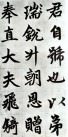 君自號也以
瑞銳升朝恩贈
奉直大夫飛騎